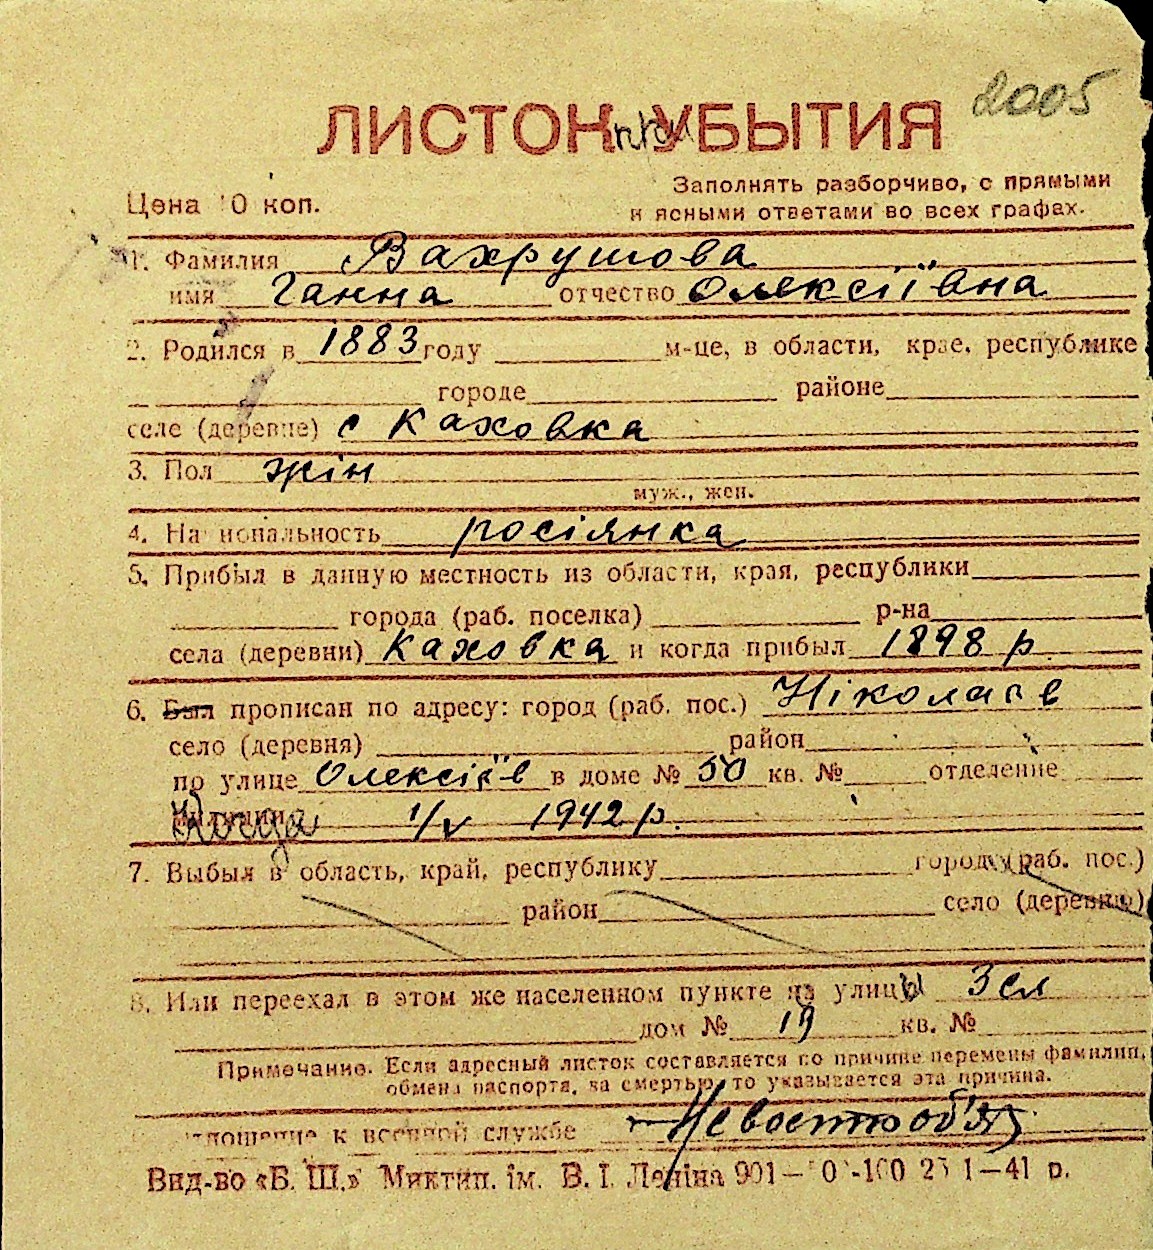 2005
ЛИСТОК при УБЫТИЯ
Цена 10 коп.
Заполнять разборчиво, с прямыми
и ясными ответами во всех графах.
1. Фамилия Вахрушова
имя Ганна отчество Олексіївна
2. Родился в 1883 году м-це, в области, крае, республике
городе районе
селе (деревне) с Каховка
3. Пол жін
муж., жен.
4. Национальность росіянка
5. Прибыл в данную местность из области, края, республики
города (раб. поселка) р-на
села (деревни) Каховка и когда прибыл 1898 р.
6. Был прописан по адресу: город (раб. пос.) Ніколаєв
село (деревня) район
по улице Олексіїв в доме № 50 кв. № отделение
милиции Когда 1/V 1942 р.
7. Выбыл в область, край, республику город (раб. пос.)
район село (деревню)
8. Или переехал в этом же населенном пункте из улицы 3 сл
дом № 19 кв. №
Примечание. Если адресный листок составляется по причине перемены фамилии,
обмена паспорта, за смертью, то указывается эта причина.
к военной службе Невоєннооб'яз
Вид-во «Б. Ш.» Миктип. ім. В. І. Леніна 901— 1—41 р.